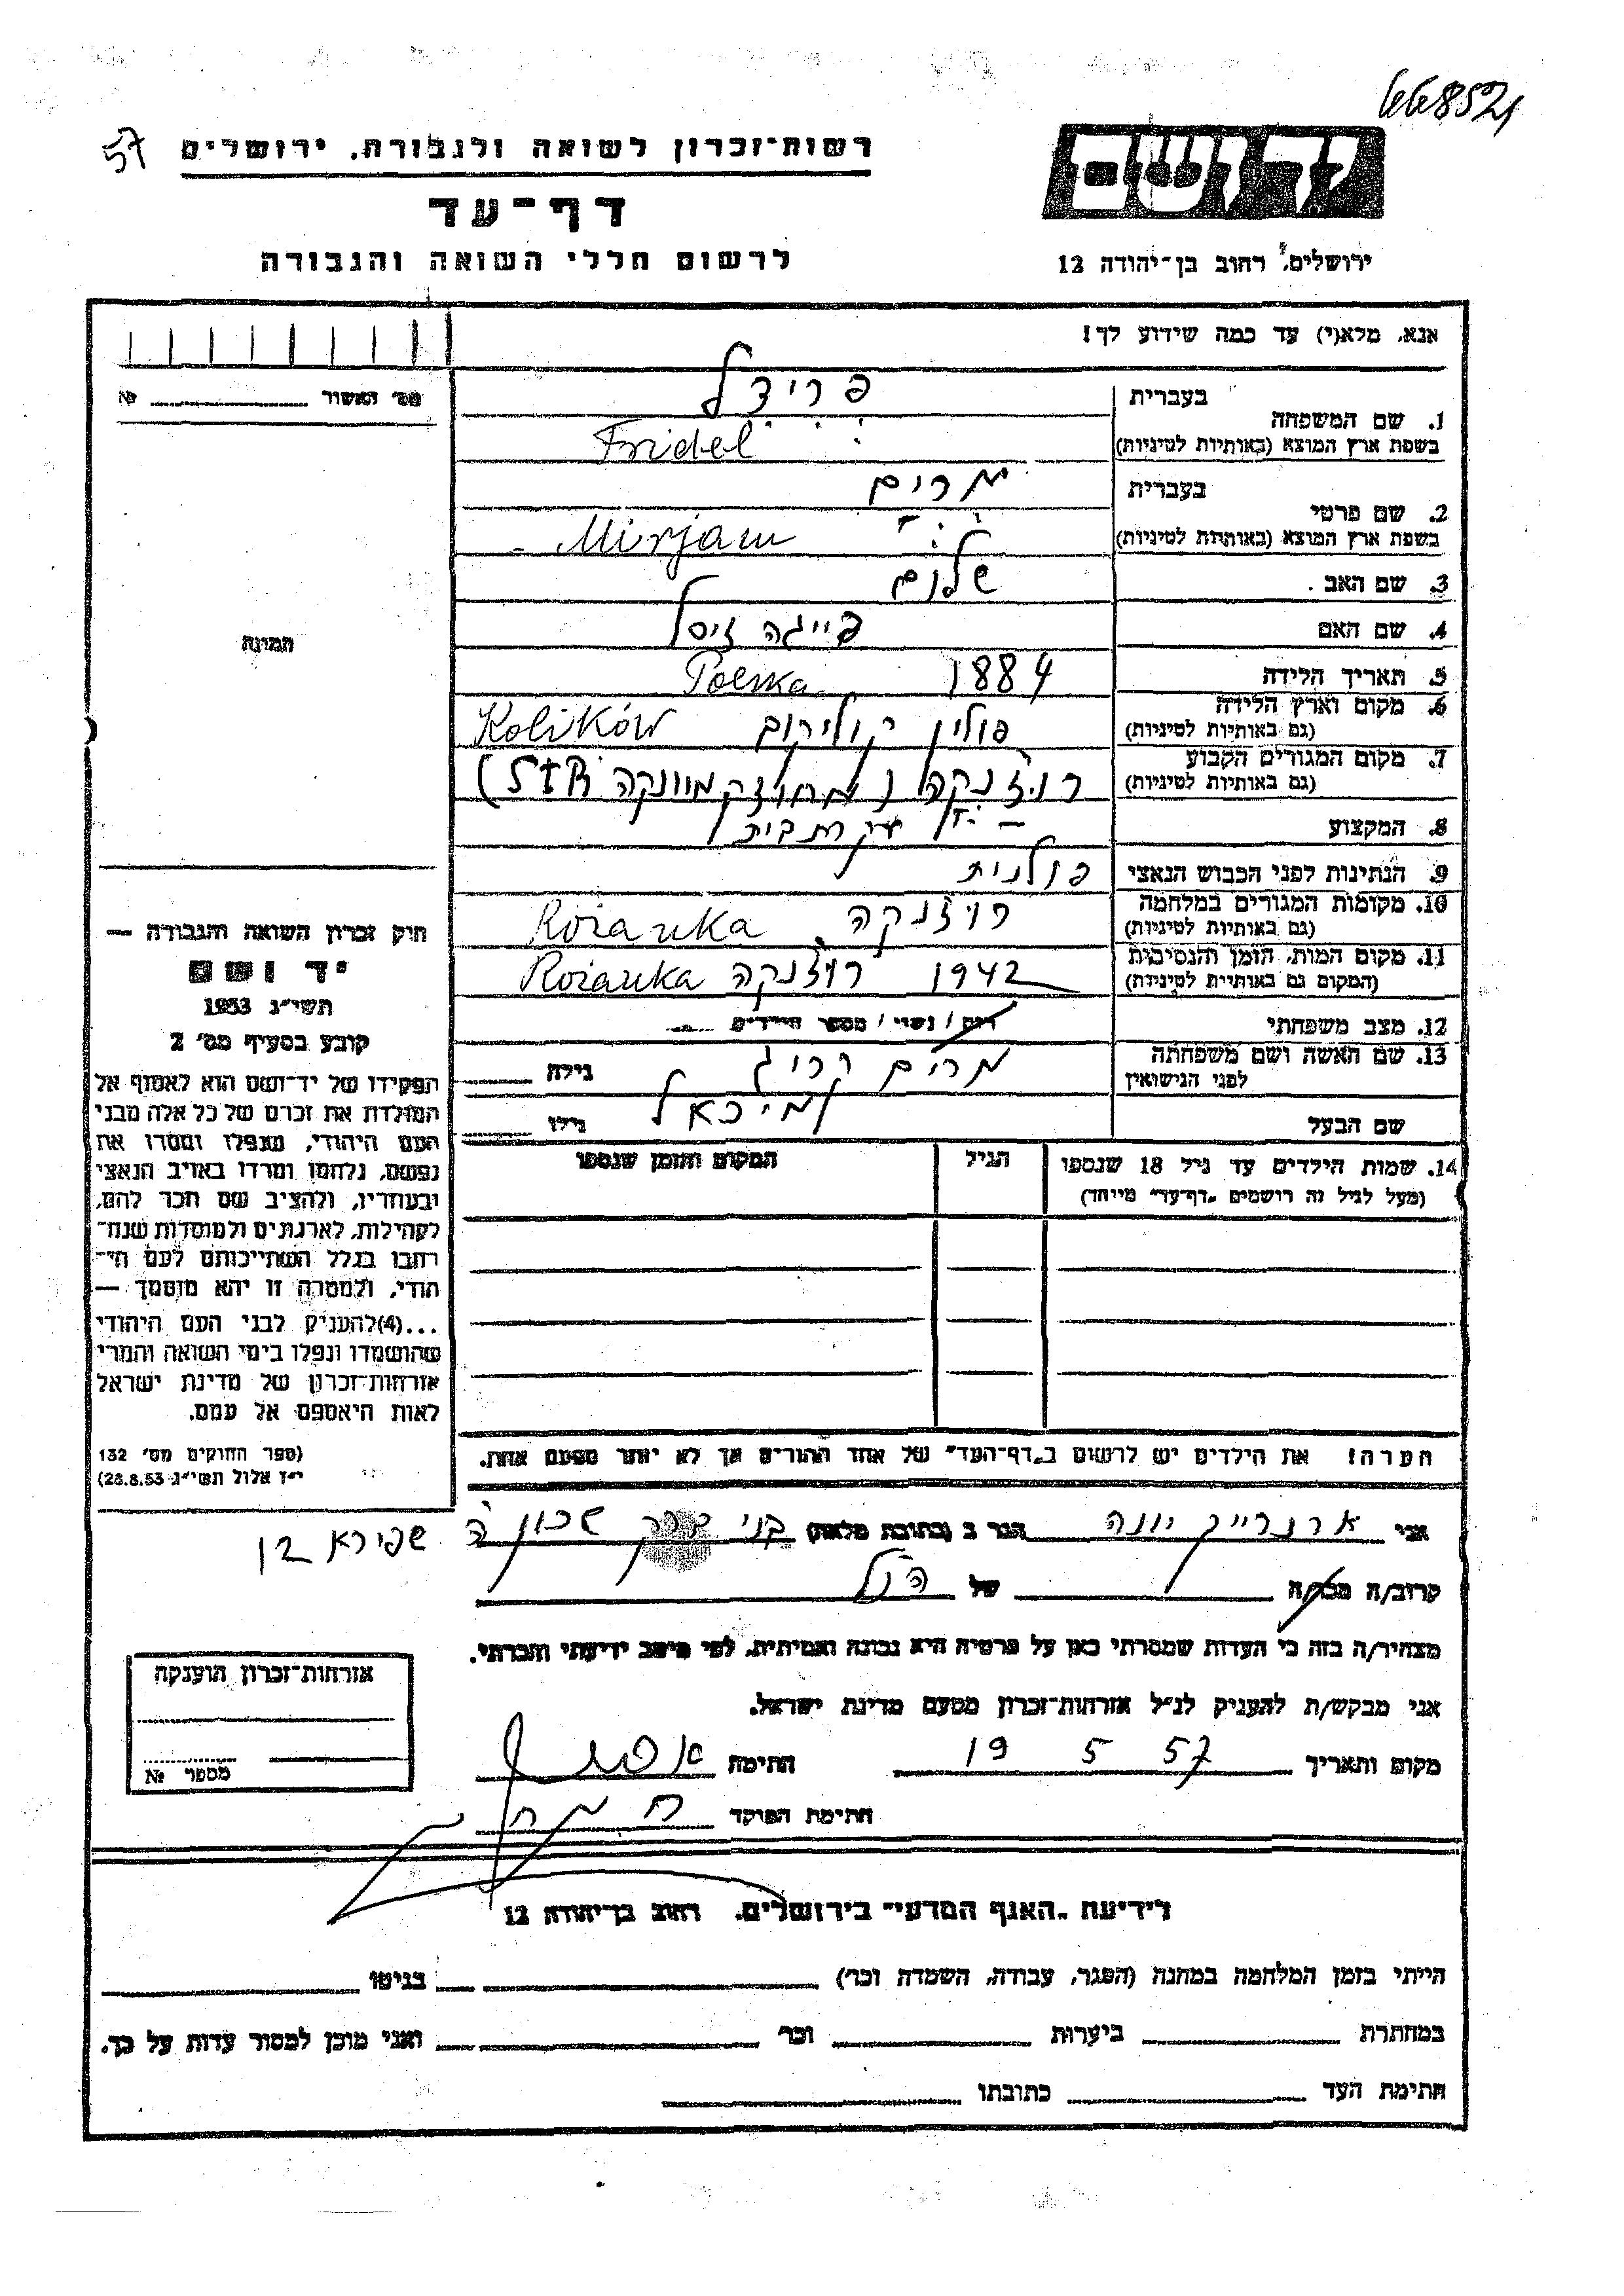 668521
57
רשות־זכרון לשואה ולגבורת, ירושלים
יד ושם
דף־עד
לרשום חללי השואה והגבורה
ירושלים, רחוב בן־יהודה 12
אנא, מלא(י) עד כמה שידוע לך!
מס׳ האשור № 
בעברית פרידל
1. שם המשפחה
בשפת ארץ המוצא (באותיות לטיניות) Fridel
בעברית מרים
2. שם פרטי
בשפת ארץ המוצא (באותיות לטיניות) Mirjam
3. שם האב שלום
4. שם האם פייגה זיסל
5. תאריך הלידה 1884 Polska
6. מקום וארץ הלידה פולין קוליקוב Kolików
(גם באותיות לטיניות)
7. מקום המגורים הקבוע רוז'נקה
(גם באותיות לטיניות)
8. המקצוע עקרת בית
9. הנתינות לפני הכבוש הנאצי פולנית
10. מקומות המגורים במלחמה רוז'נקה Rożanka
(גם באותיות לטיניות)
11. מקום המות, הזמן והנסיבות 1942 רוז'נקה Rożanka
(המקום גם באותיות לטיניות)
12. מצב משפחתי רווק / נשוי / מספר הילדים
13. שם האשה ושם משפחתה מרים קרוג גילה
לפני הנישואין
שם הבעל מיכאל גילו
14. שמות הילדים עד גיל 18 שנספו הגיל המקום והזמן שנספו
(מעל לגיל זה רושמים „דף־עד״ מייחד)
הערה! את הילדים יש לרשום ב„דף־העד״ של אחד ההורים אך לא יותר מפעם אחת.
תמונה
חוק זכרון השואה והגבורה —
יד ושם
תשי״ג 1953
קובע בסעיף מס׳ 2
תפקידו של יד־ושם הוא לאסוף אל
המולדת את זכרם של כל אלה מבני
העם היהודי, שנפלו ומסרו את
נפשם, נלחמו ומרדו באויב הנאצי
ובעוזריו, ולהציב שם וזכר להם,
לקהילות, לארגונים ולמוסדות שנח־
רבו בגלל השתייכותם לעם הי־
הודי, ולמטרה זו יהא מוסמך —
...(4)להעניק לבני העם היהודי
שהושמדו ונפלו בימי השואה והמרי
אזרחות־זכרון של מדינת ישראל
לאות היאספם אל עמם.
(ספר החוקים מס׳ 132
י״ז אלול תשי״ג 28.8.53)
אני ארנרייך יונה הגר ב (כתובת מלאה) בני ברק שכון ה
שפירא 12
קרוב/ה מכר/ה של הנ״ל
מצהיר/ה בזה כי העדות שמסרתי כאן על פרטיה היא נכונה ואמיתית, לפי מיטב ידיעתי והכרתי.
אני מבקש/ת להעניק לנ״ל אזרחות־זכרון מטעם מדינת ישראל.
מקום ותאריך 19 5 57 חתימה
חתימת הפוקד
אזרחות־זכרון הוענקה
מספר №
לידיעת „האגף המדעי״ בירושלים, רחוב בן־יהודה 12
הייתי בזמן המלחמה במחנה (הסגר, עבודה, השמדה וכו׳) בגיטו
במחתרת ביערות וכו׳ ואני מוכן למסור עדות על כך.
חתימת העד כתובתו